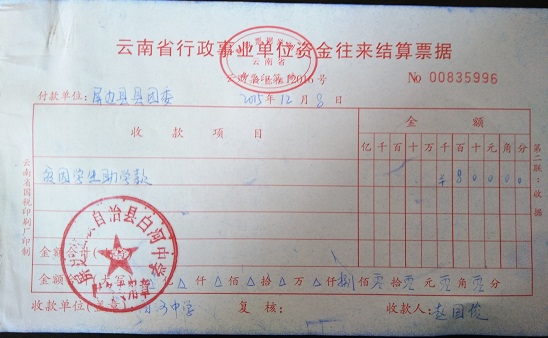 云南省行政事业单位资金往来结算票据
云南省
No 00835996
付款单位：屏边县县团委 2015年12月8日
收款项目 金额
亿千百十万千百十元角分
贫困学生助学款 ¥80000
金额
仟佰拾万仟捌佰零拾零元零角零分
收款单位(盖章)：白河中学 复核： 收款人：赵国俊
第二联：收据
云南省国税印刷厂印制
自治县白河中学